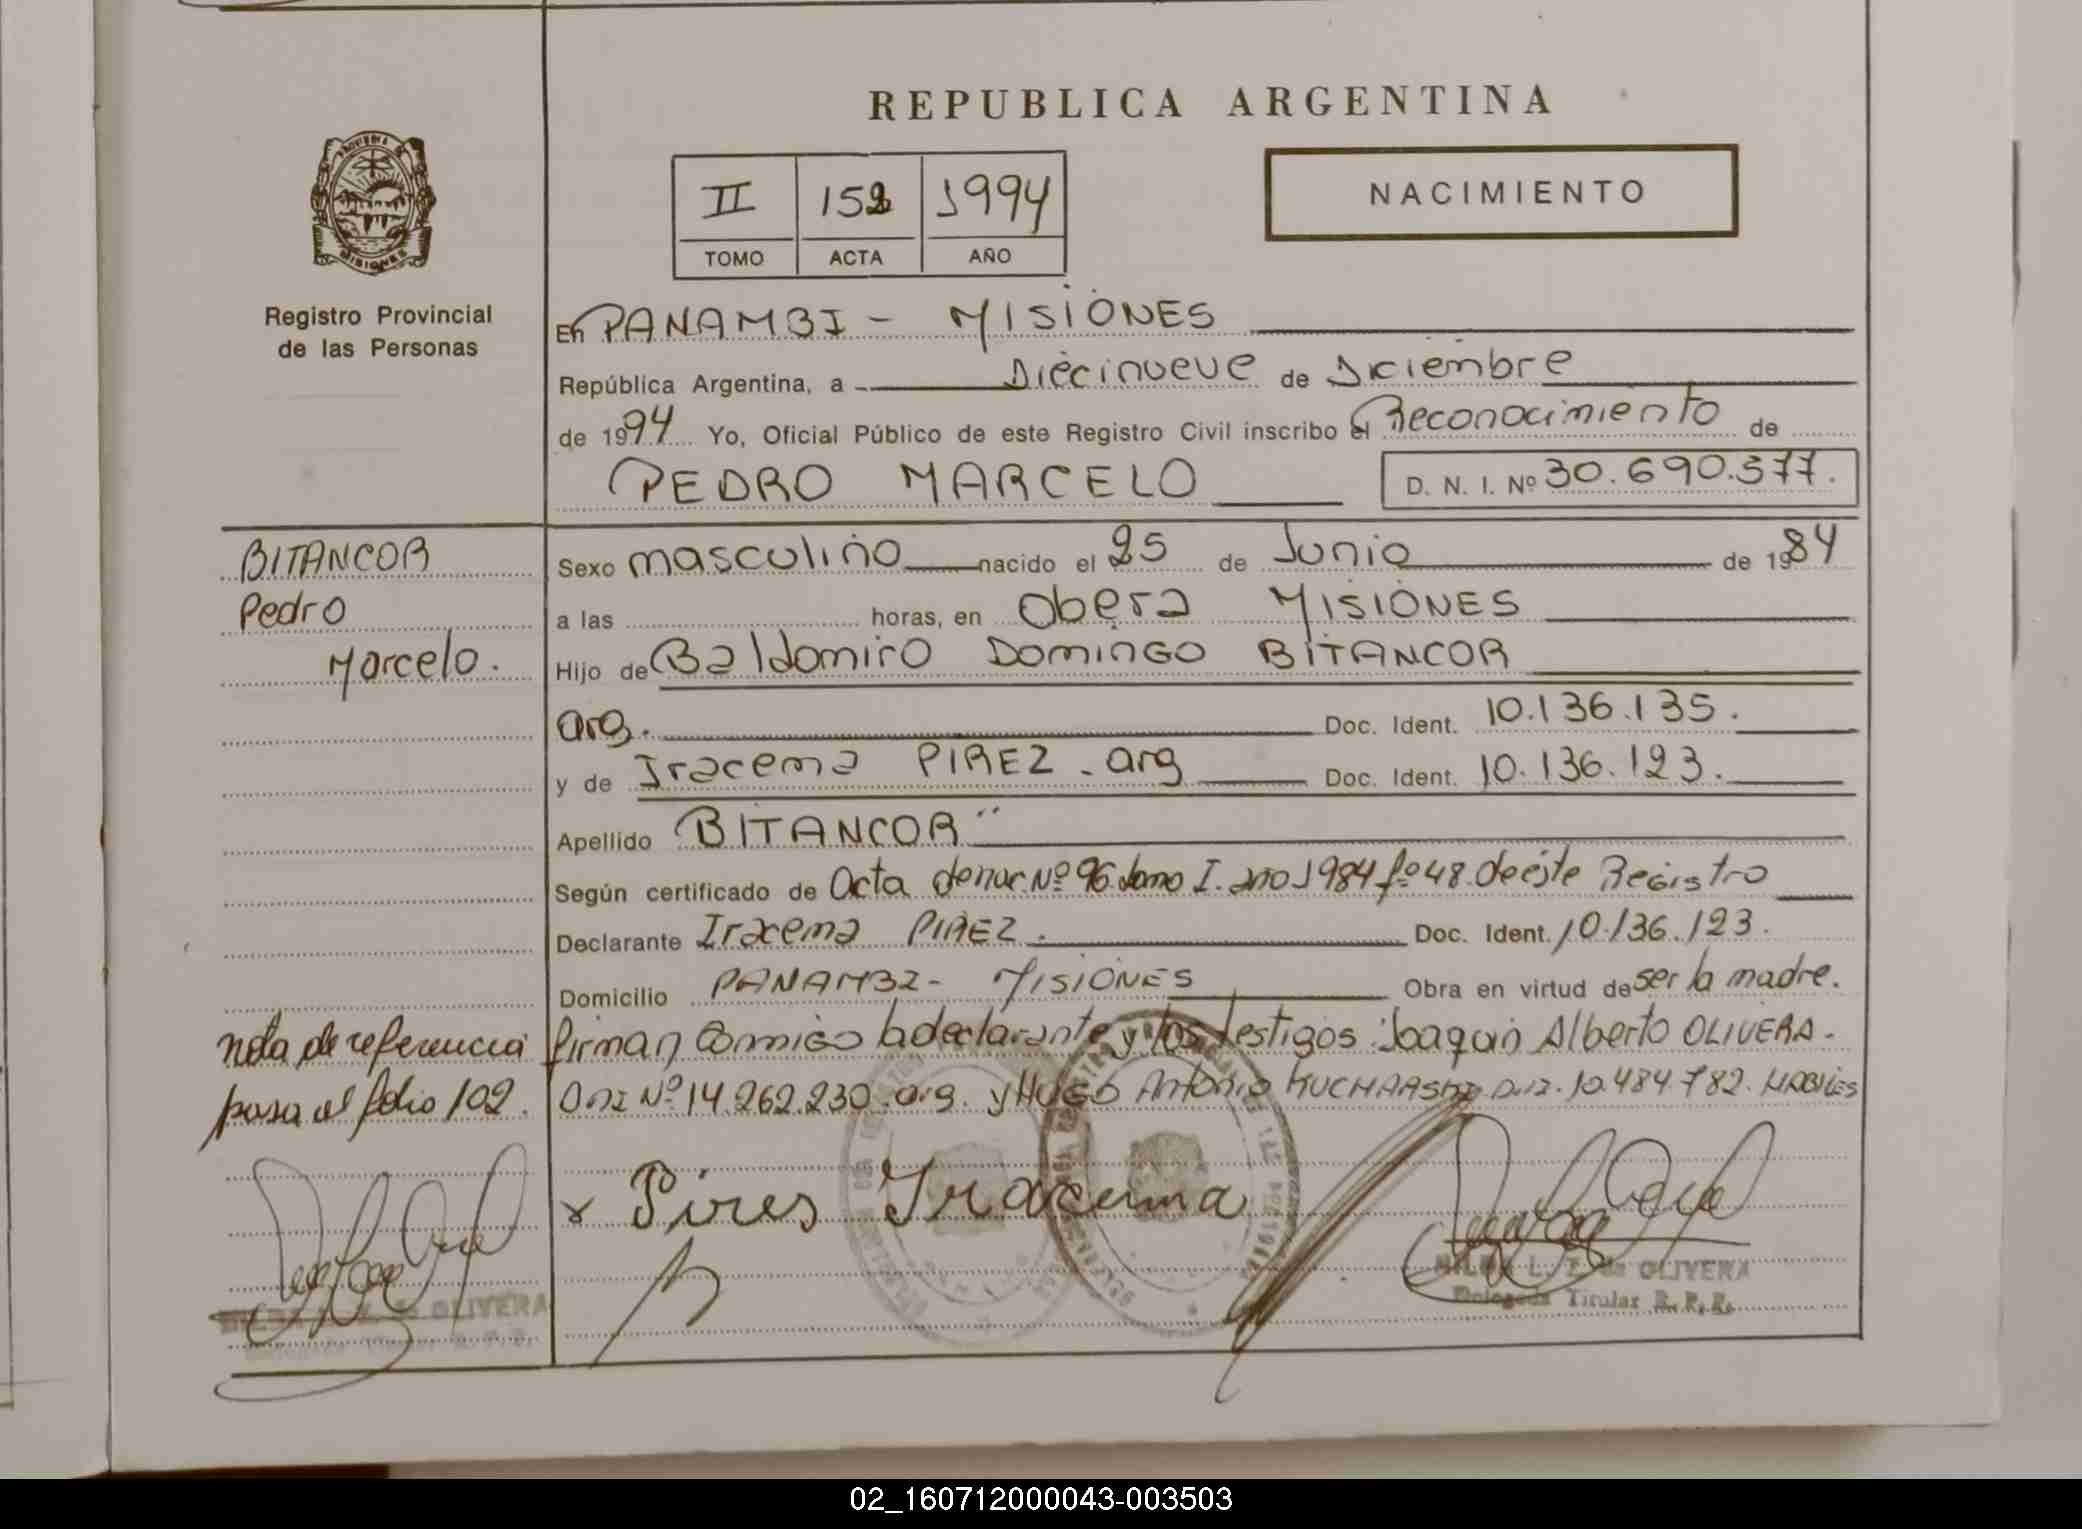 REPUBLICA ARGENTINA
II 152 1994
TOMO ACTA AÑO
NACIMIENTO
MISIONES
Registro Provincial
de las Personas
En PANAMBI - MISIONES
República Argentina, a Diecinueve de Diciembre
de 1994 Yo, Oficial Público de este Registro Civil inscribo el Reconocimiento de
PEDRO MARCELO D. N. I. Nº 30.690.577.
BITANCOR
Pedro
Marcelo.
Sexo masculino nacido el 25 de Junio de 1984
a las horas, en Obera MISIONES
Hijo de Baldomiro DOMINGO BITANCOR
arg. Doc. Ident. 10.136.135.
y de Iracema PIREZ - arg Doc. Ident. 10.136.123.
Apellido BITANCOR"
Según certificado de Acta de nac. Nº 96 tomo I. año 1984 fº 48. de éste Registro
Declarante Iracema PIREZ. Doc. Ident. 10.136.123.
Domicilio PANAMBI - MISIONES Obra en virtud de ser la madre.
firman Conmigo la declarante y los testigos: Joaquin Alberto OLIVERA.
DNI Nº 14.262.230. arg. y HUGO Antonio D.N.I. 10.484.782. HABILES
nota de referencia
pasa al folio 102.
x Pires Iracema
L. Z. de OLIVERA
Titular R. P. P.
de OLIVERA
02_160712000043-003503